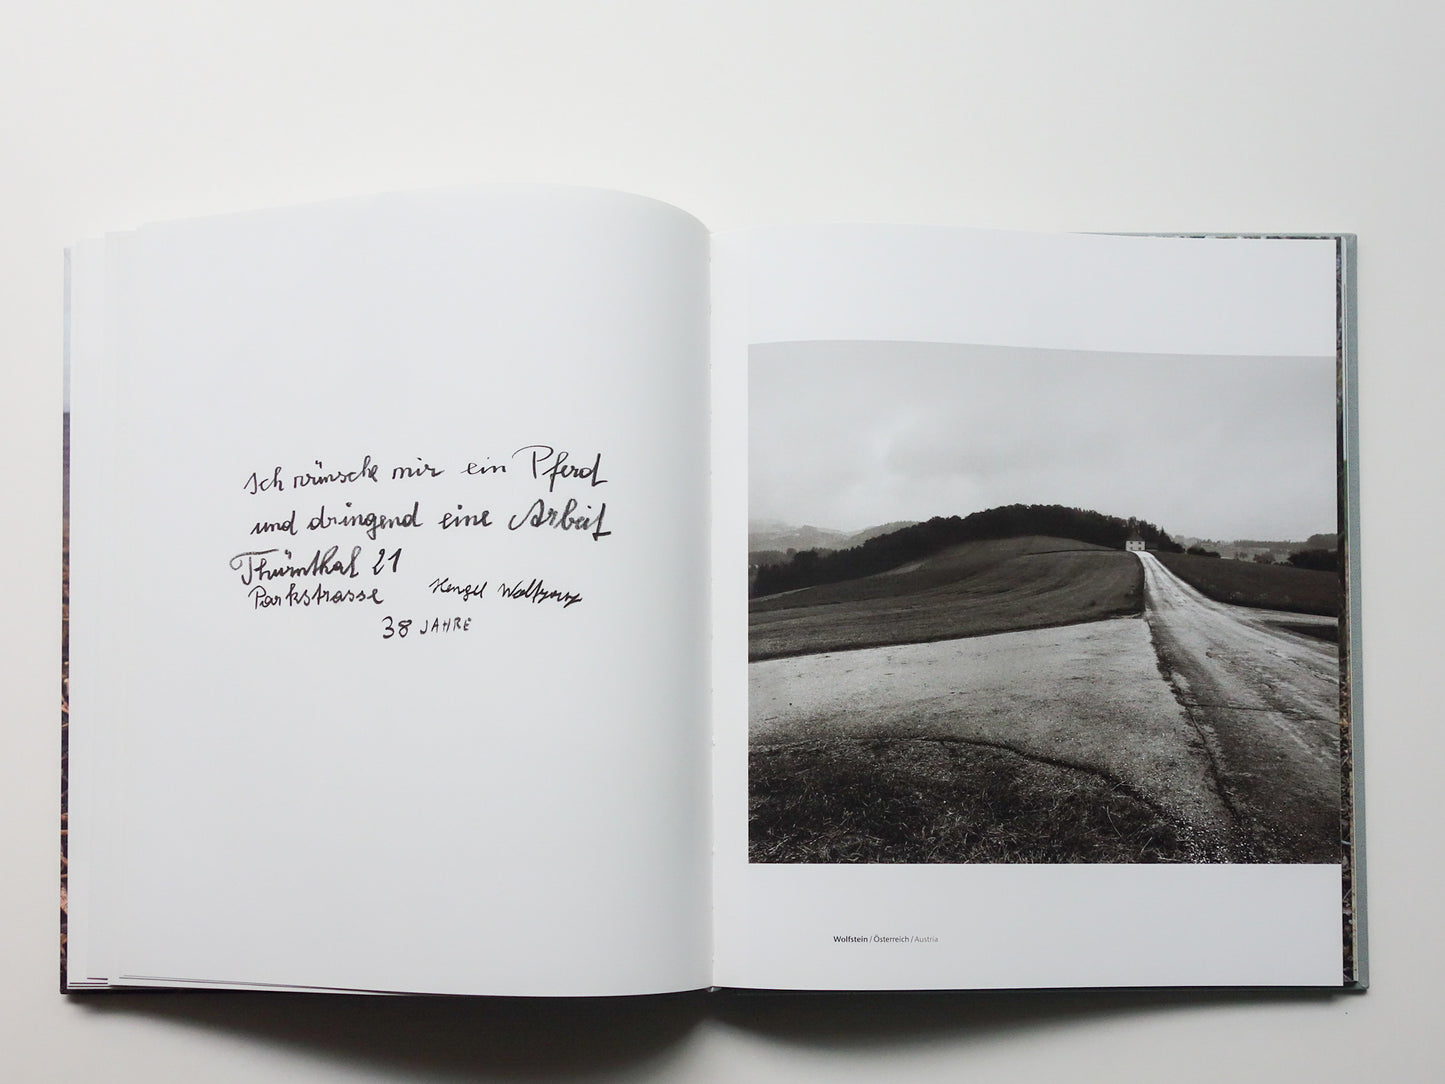 Ich wünsche mir ein Pferd
und dringend eine Arbeit
Thürnthal 21
Parkstrasse Hengel Wolfgang
38 JAHRE
Wolfstein / Österreich / Austria